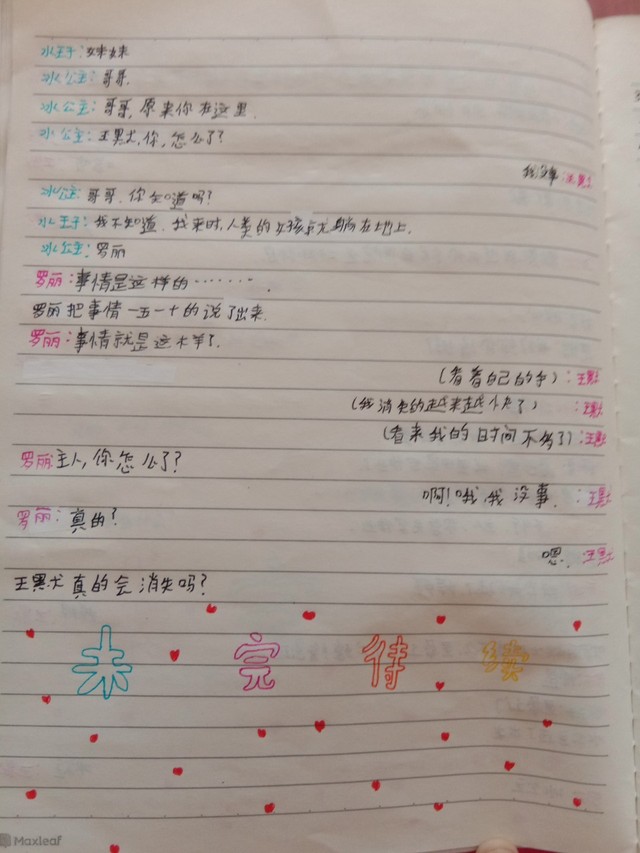 水王子：妹妹
冰公主：哥哥.
冰公主：哥哥,原来你在这里.
冰公主：王默,你,怎么了?
我没事：王默
冰公主：哥哥.你知道吗?
水王子：我不知道.我来时,人类的女孩就躺在地上.
冰公主：罗丽
罗丽：事情是这样的········.
罗丽把事情一五一十的说了出来.
罗丽：事情就是这样了.
(看看自己的手)：王默
(我消失的越来越快了)：王默
(看来我的时间不多了)：王默
罗丽：主人,你怎么了?
啊!哦,我没事.：王默
罗丽：真的?
嗯.：王默
王默真的会消失吗?
未完待续
Maxleaf